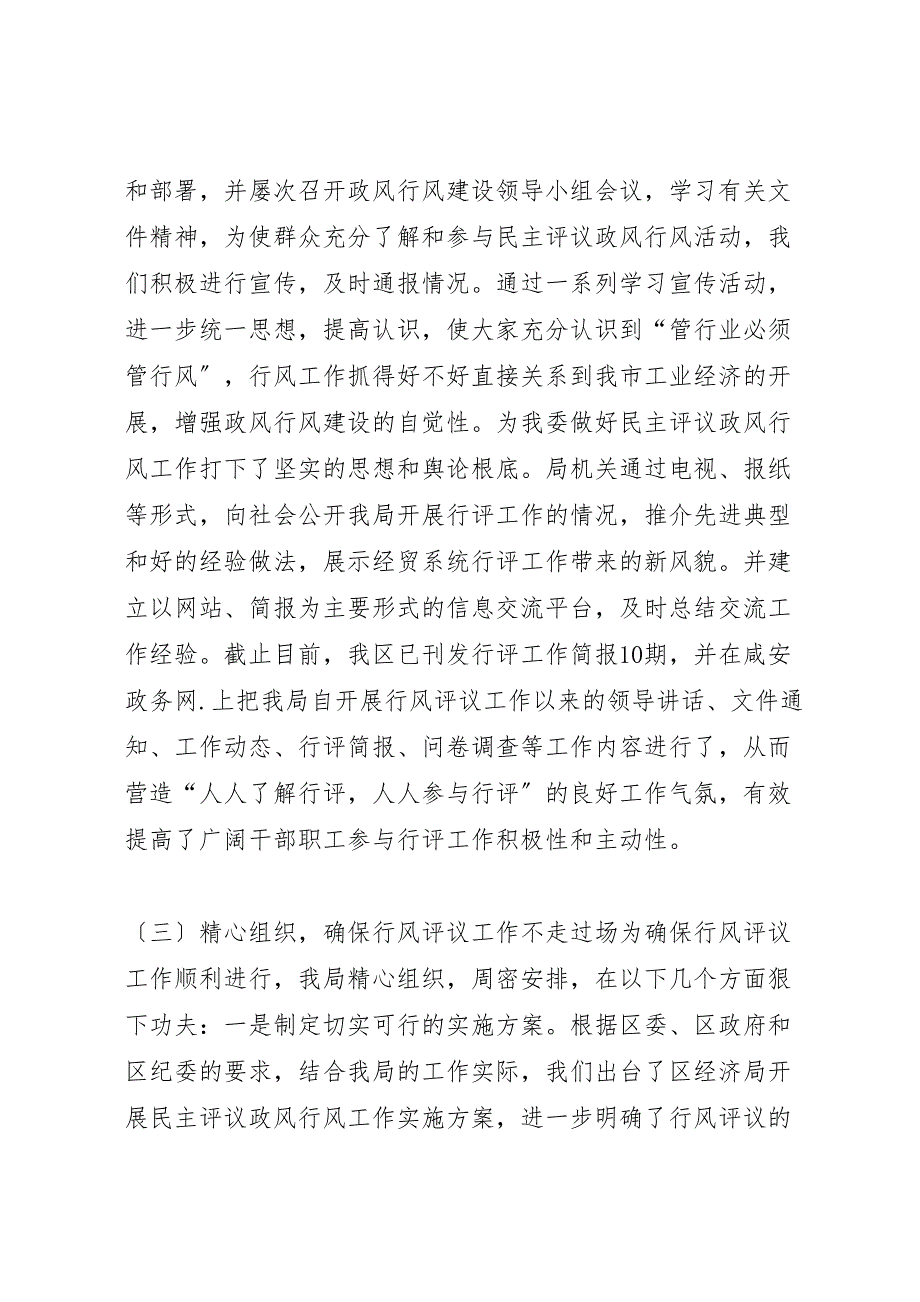 和部署，并屡次召开政风行风建设领导小组会议，学习有关文
件精神，为使群众充分了解和参与民主评议政风行风活动，我
们积极进行宣传，及时通报情况。通过一系列学习宣传活动，
进一步统一思想，提高认识，使大家充分认识到“管行业必须
管行风〞，行风工作抓得好不好直接关系到我市工业经济的开
展，增强政风行风建设的自觉性。为我委做好民主评议政风行
风工作打下了坚实的思想和舆论根底。局机关通过电视、报纸
等形式，向社会公开我局开展行评工作的情况，推介先进典型
和好的经验做法，展示经贸系统行评工作带来的新风貌。并建
立以网站、简报为主要形式的信息交流平台，及时总结交流工
作经验。截止目前，我区已刊发行评工作简报10期，并在咸安
政务网.上把我局自开展行风评议工作以来的领导讲话、文件通
知、工作动态、行评简报、问卷调查等工作内容进行了，从而
营造“人人了解行评，人人参与行评〞的良好工作气氛，有效
提高了广阔干部职工参与行评工作积极性和主动性。
〔三〕精心组织，确保行风评议工作不走过场为确保行风评议
工作顺利进行，我局精心组织，周密安排，在以下几个方面狠
下功夫：一是制定切实可行的实施方案。根据区委、区政府和
区纪委的要求，结合我局的工作实际，我们出台了区经济局开
展民主评议政风行风工作实施方案，进一步明确了行风评议的